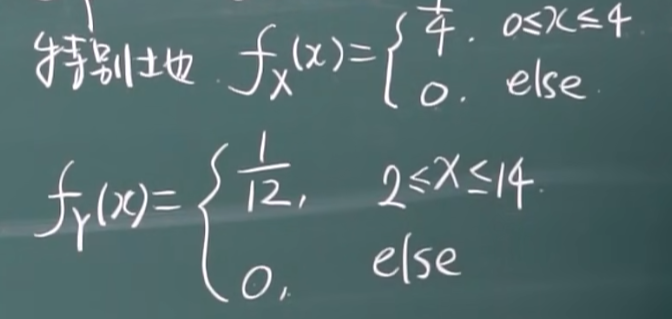 特别地 f_X(x)={ 1/4, 0≤x≤4
0, else.
f_Y(x)={ 1/12, 2≤x≤14.
0, else